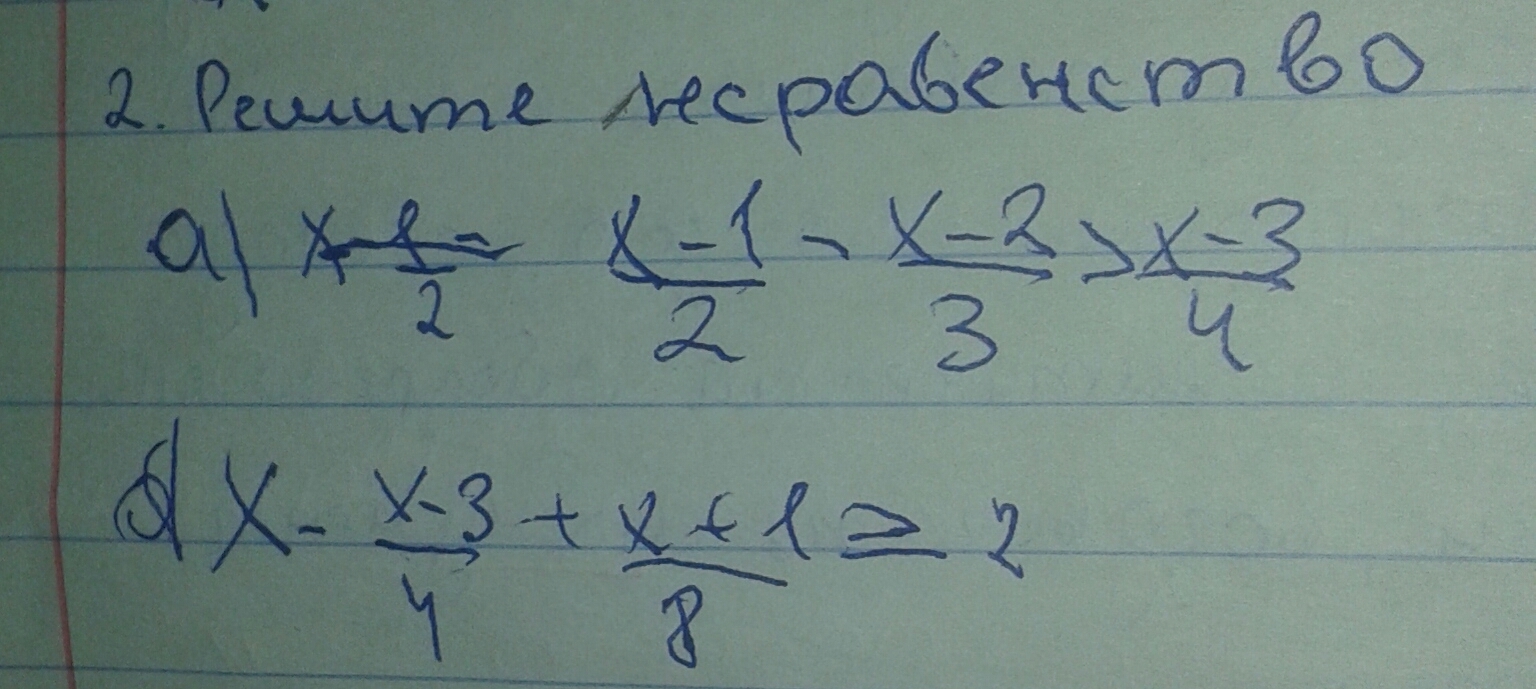 2. Решите неравенство
а) x-1/2 - x-1/2 - x-2/3 > x-3/4
б) x - x-3/4 + x+1/8 ≥ 2